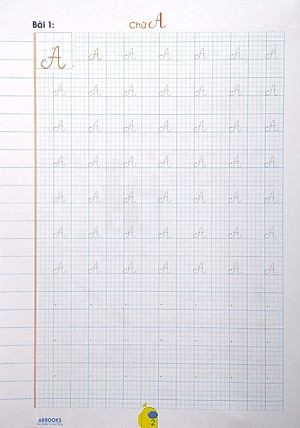 Bài 1: Chữ A
A A A A A A A
A A A A A A A
A A A A A A A
A A A A A A A
A A A A A A A
A A A A A A A
A A A A A A A
ABBOOKS
2